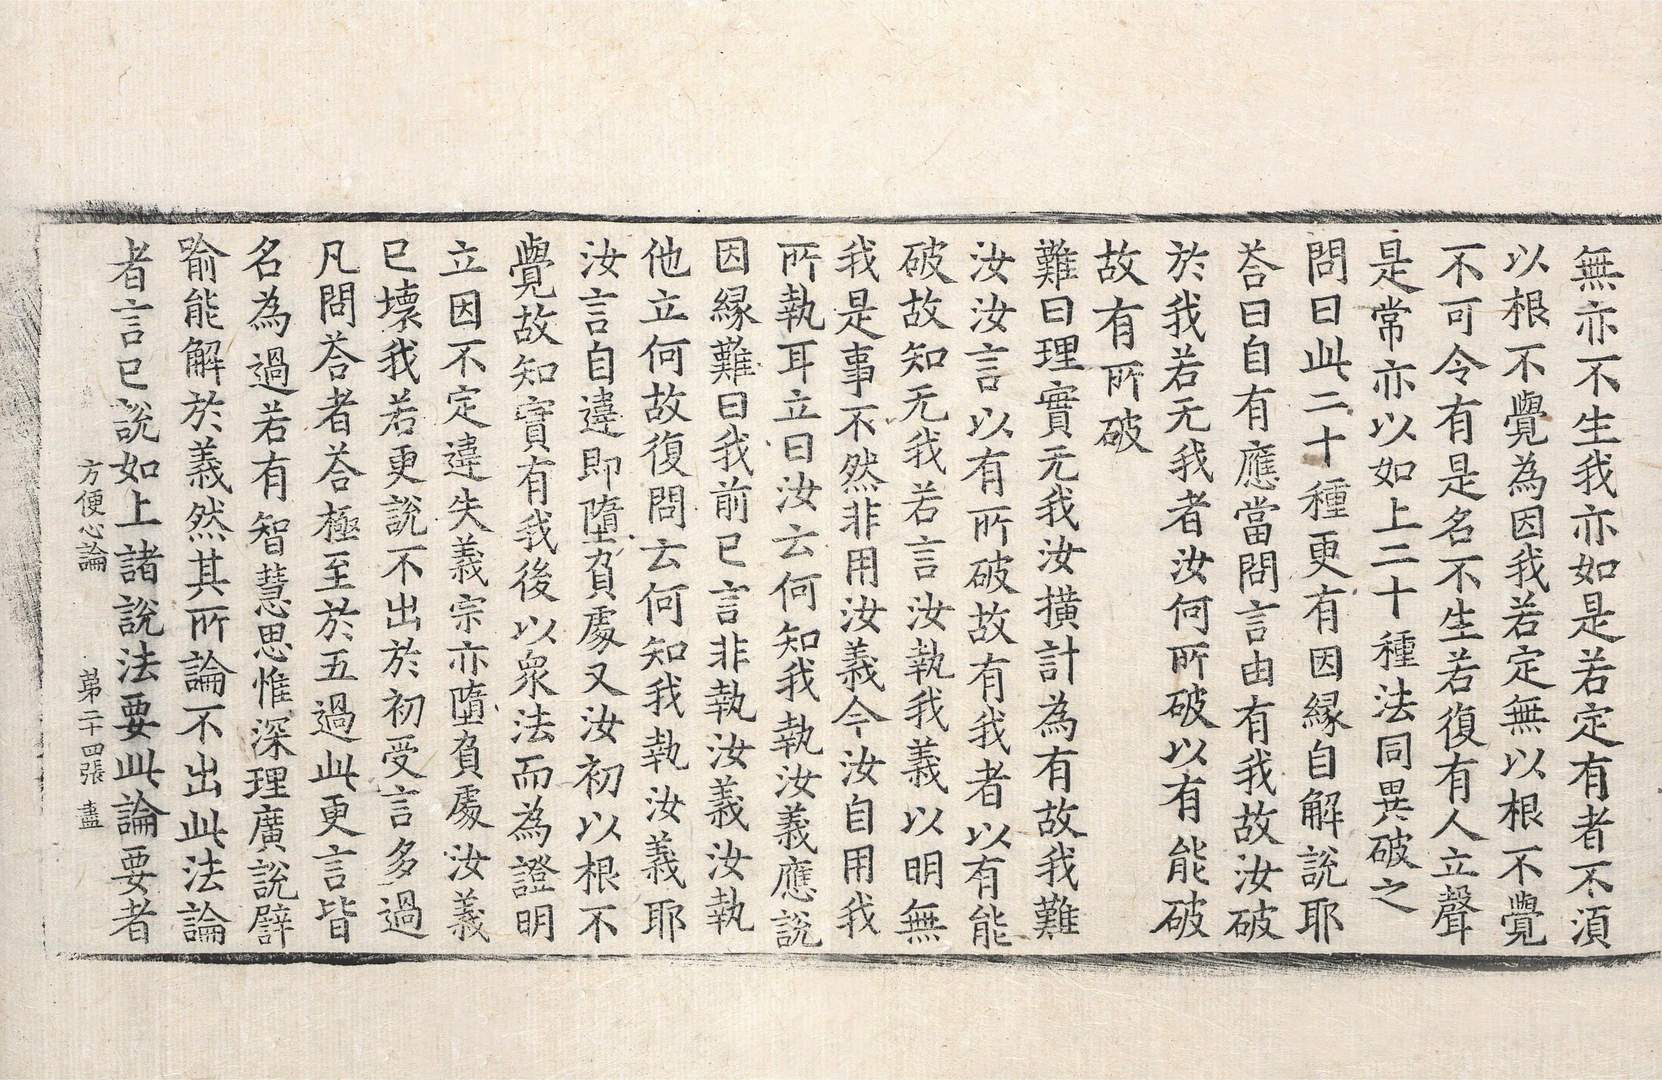 無亦不生我亦如是若定有者不湏
以根不覺為因我若定無以根不覺
不可令有是名不生若復有人立聲
是常亦以如上二十種法同異破之
問曰此二十種更有因緣自解說耶
荅曰自有應當問言由有我故汝破
於我若无我者汝何所破以有能破
故有所破
難曰理實无我汝撗計為有故我難
汝汝言以有所破故有我者以有能
破故知无我若言汝執我義以明無
我是事不然非用汝義今汝自用我
所執耳立曰汝云何知我執汝義應說
因緣難曰我前已言非執汝義汝執
他立何故復問云何知我執汝義耶
汝言自違即墮負處又汝初以根不
覺故知實有我後以衆法而為證明
立因不定違失義宗亦墮負處汝義
已壞我若更說不出於初受言多過
凡問荅者荅極至於五過此更言皆
名為過若有智慧思惟深理廣說譬
喻能解於義然其所論不出此法論
者言已說如上諸說法要此論要者
方便心論　第二十四張　盡